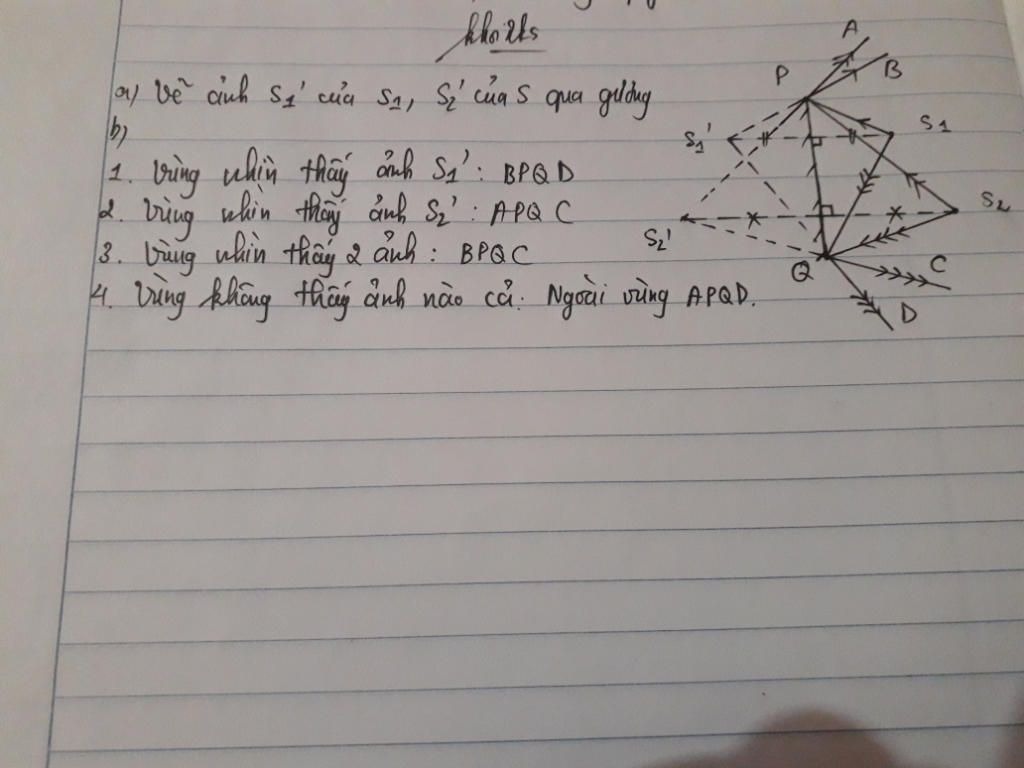 a) Vẽ ảnh S1' của S1, S2' của S qua gương
b)
1. Vùng nhìn thấy ảnh S1': BPQD
2. Vùng nhìn thấy ảnh S2': APQC
3. Vùng nhìn thấy 2 ảnh: BPQC
4. Vùng không thấy ảnh nào cả: Ngoài vùng APQD.
A
P
B
S1'
S1
S2
S2'
Q
C
D